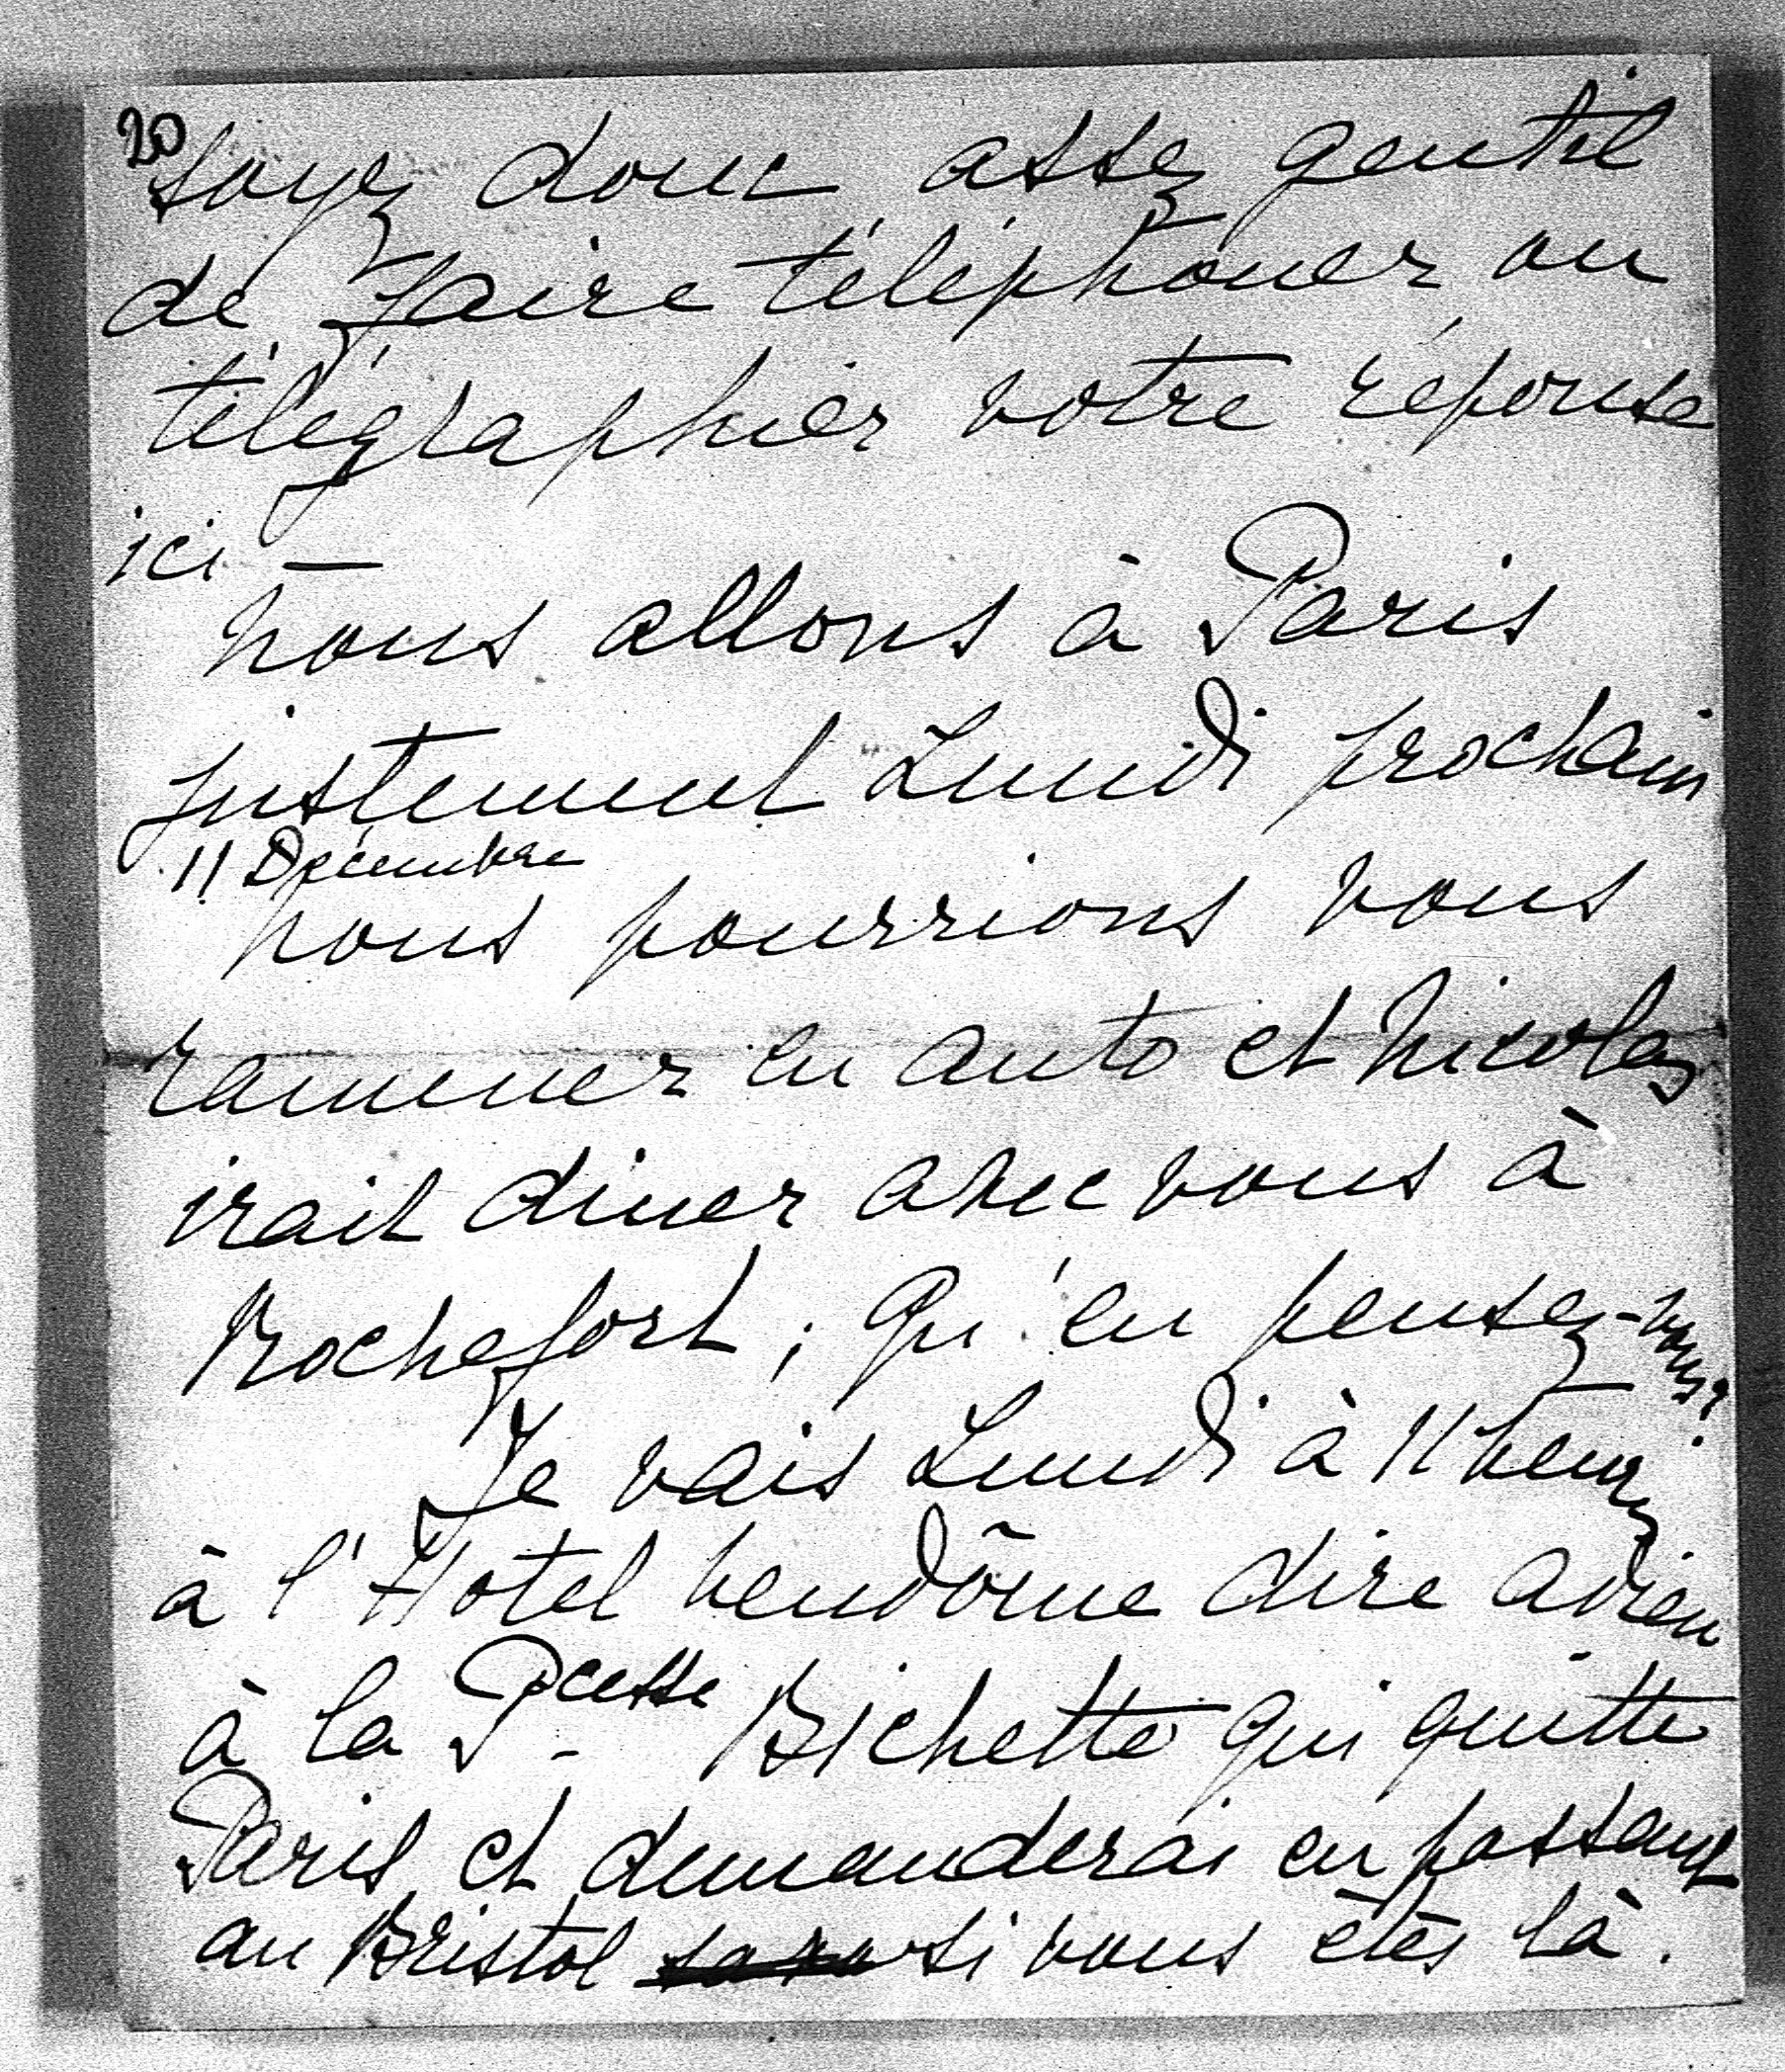 20
soyez donc assez gentil
de faire téléphoner ou
télégraphier votre réponse
ici —
nous allons à Paris
justement Lundi prochain
11 Décembre
nous pourrions vous
ramener en auto et Nicolas
irait diner avec vous à
Rochefort ; Qu'en pensez-vous?
Je vais Lundi à 11 heures
à l'Hotel Vendôme dire adieu
à la Pcesse Bichette qui quitte
Paris et demanderai en passant
au Bristol si vous êtes là.